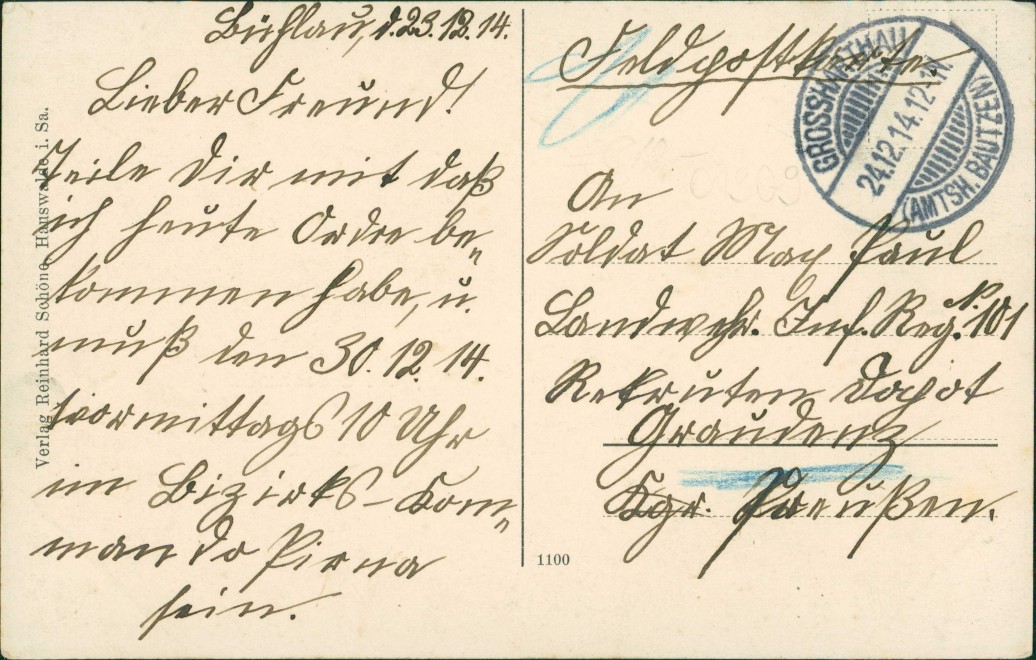 Bühlau, d. 23.12.14.
Lieber Freund!
Teile Dir mit daß
ich heute Ordre be„
kommen habe, u.
muß den 30.12.14.
vormittags 10 Uhr
im Bezirks-Kom„
mando Pirna
sein.
Verlag Reinhard Schöne, Hauswalde i. Sa.
1100
Feldpostkarte
GROSSHARTHAU
24.12.14.12-1N.
(AMTSH. BAUTZEN)
An
Soldat Max Paul
Landwehr. Inf. Reg. No. 101
Rekruten Depot
Graudenz
Kgr. Preußen.